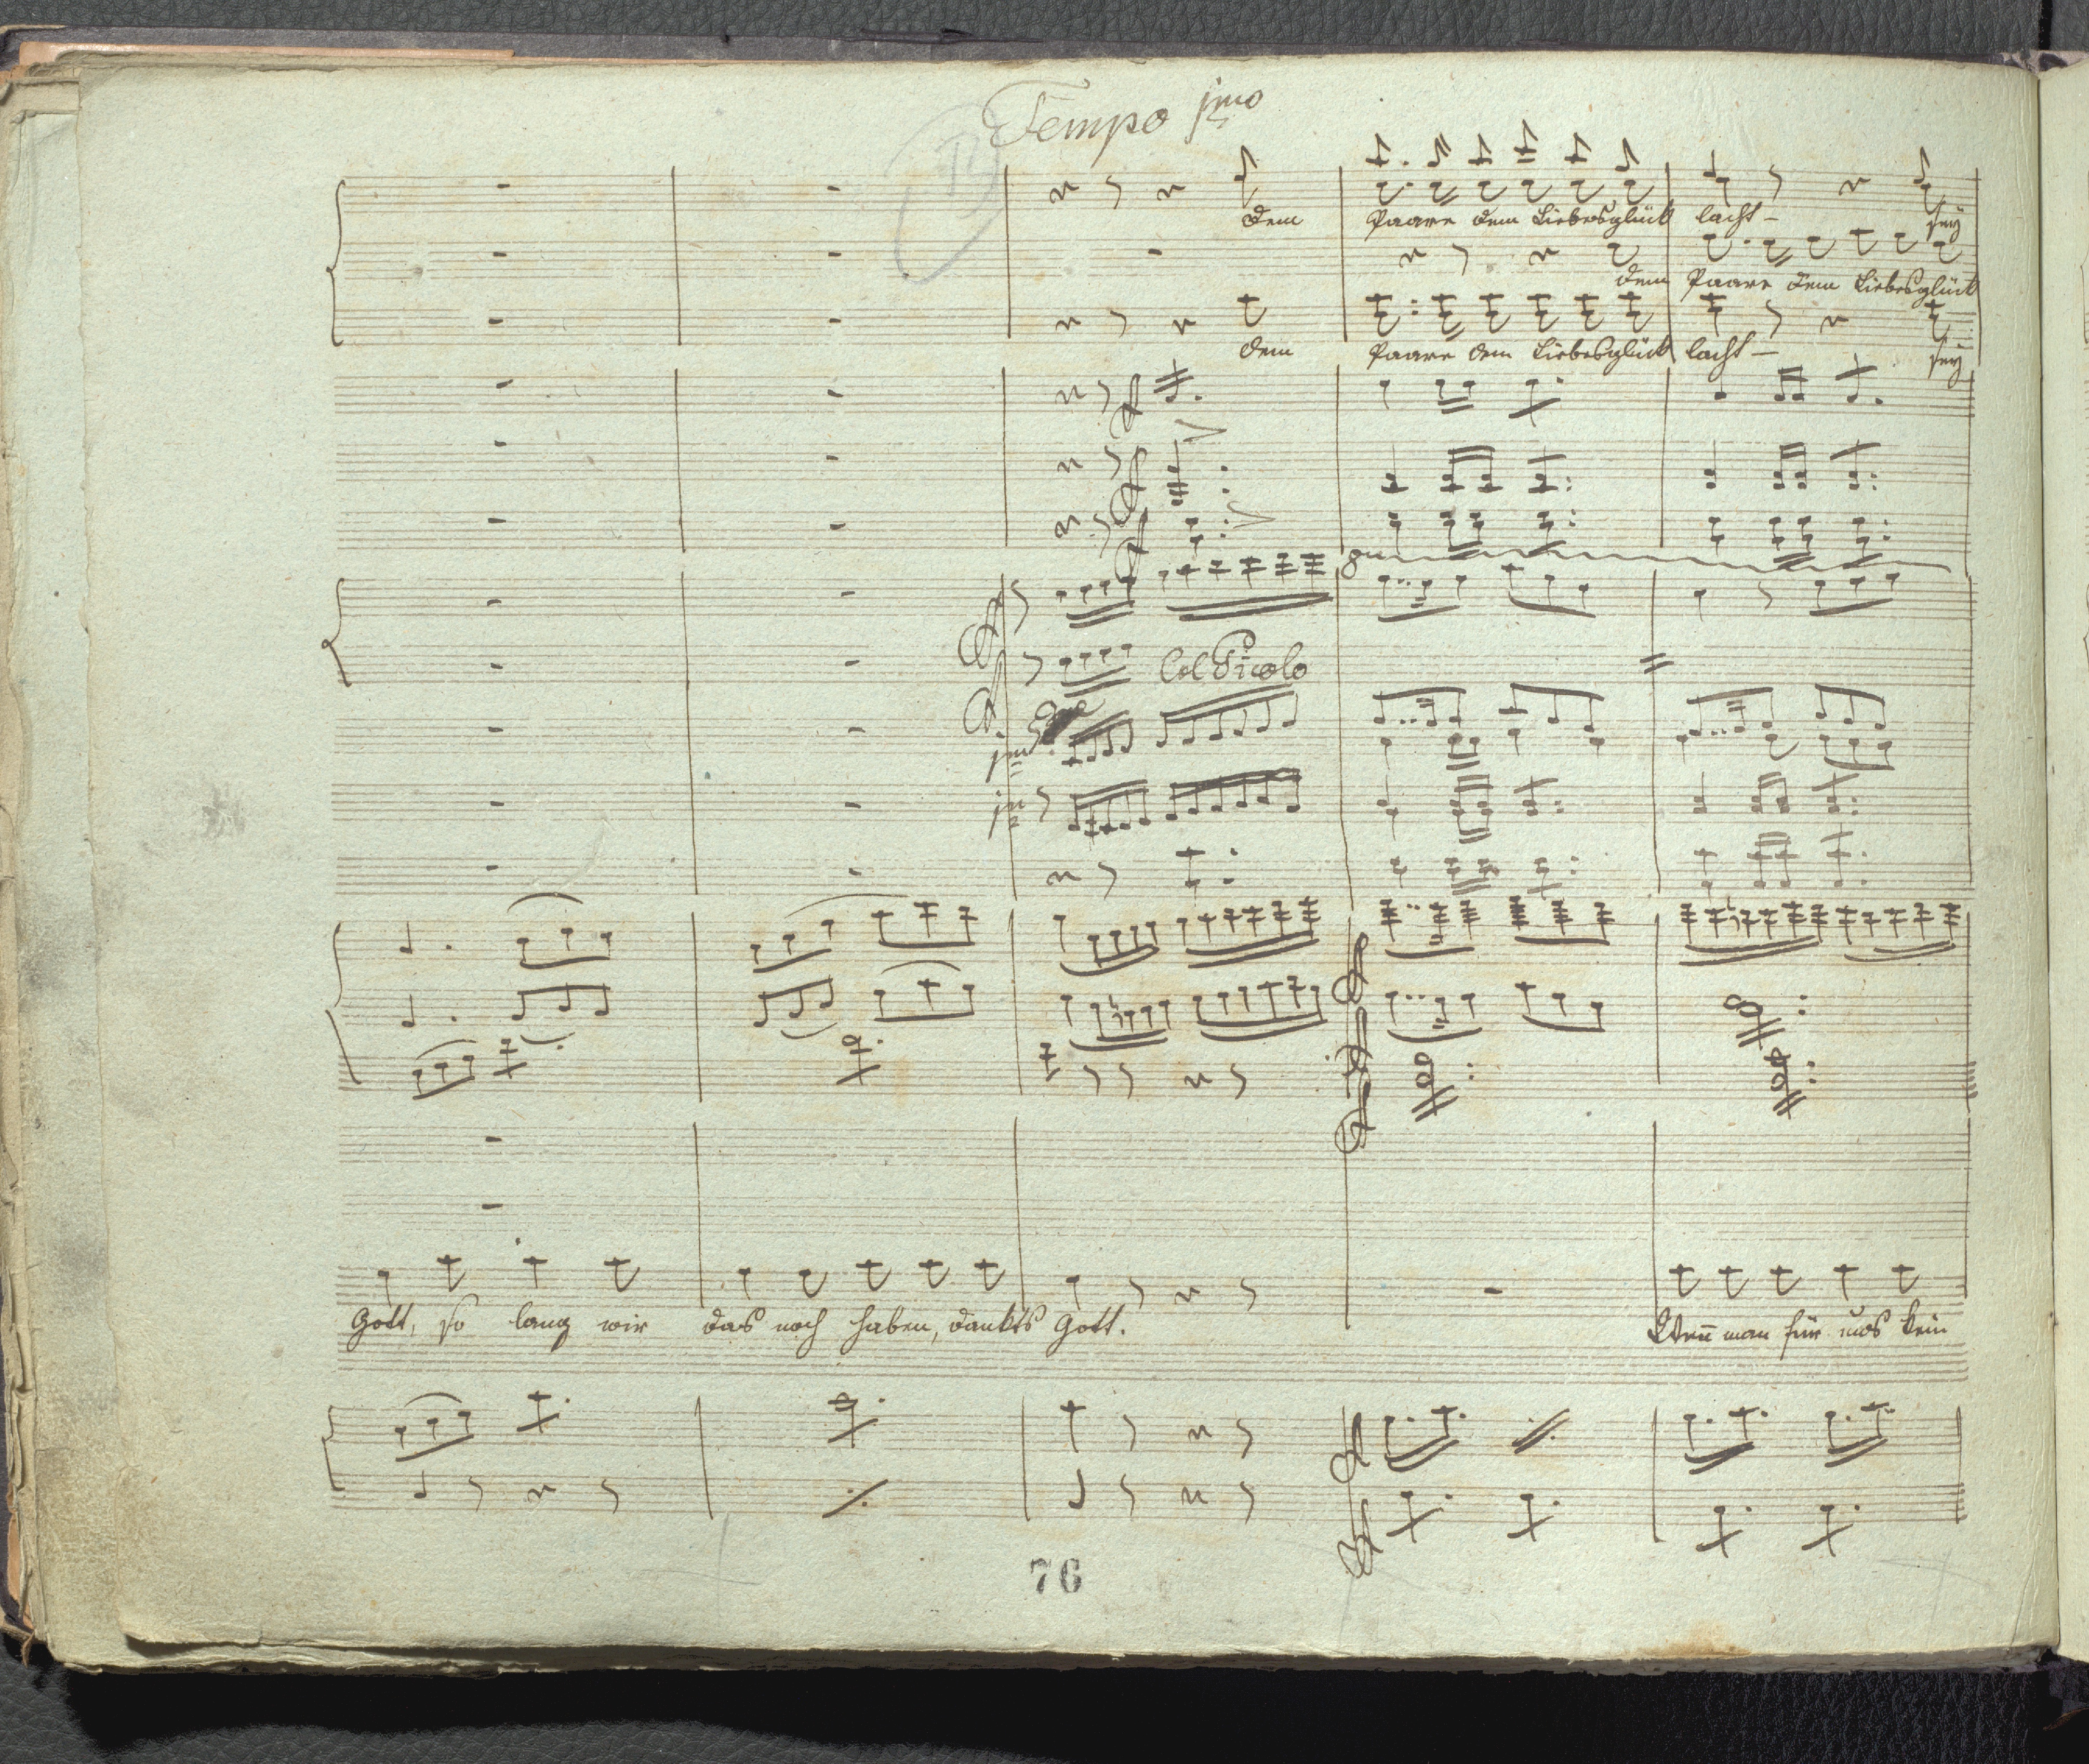 Tempo jmo
dem Paare dem Liebesglück lacht – sey
dem Paare dem Liebesglück
dem Paare dem Liebesglück lacht – sey
8va
Col Picolo
jmo
jn
Gott, so lang wir das noch haben, dankts Gott. Wen̄ man für uns kein
76